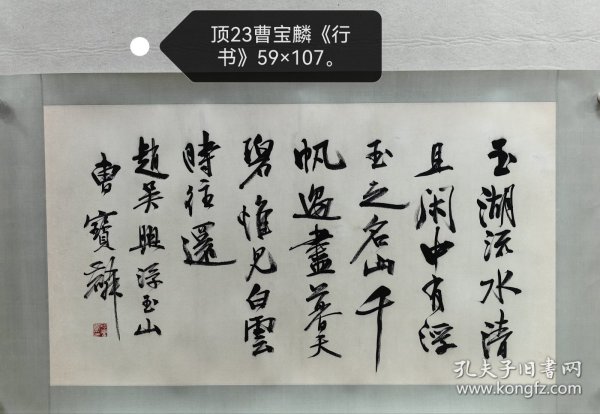 顶23曹宝麟《行
书》59×107。
玉湖流水清
且闲中有浮
玉之名山千
帆过尽暮天
碧惟见白雲
時往還
趙吴興浮玉山
曹寶麟
孔夫子旧书网
www.kongfz.com